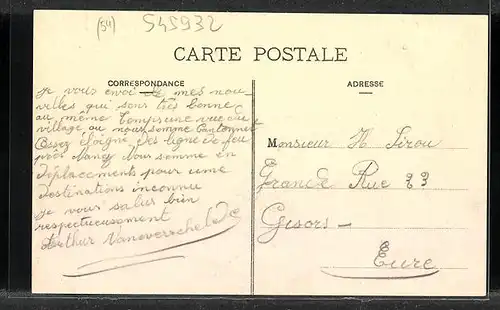 (54) 545932
CARTE POSTALE
CORRESPONDANCE
ADRESSE
Je vous envoi de mes nou-
villes qui sons très bonne
au même temps une vue du
village au nous somme Cantonner
assez éloigné des ligne de feu
près Nancy Nous somme en
déplacements pour une
destinations inconnu
Je vous salus bien
respectueusement
Arthur
Monsieur H
Grande Rue 23
Gisors -
Eure